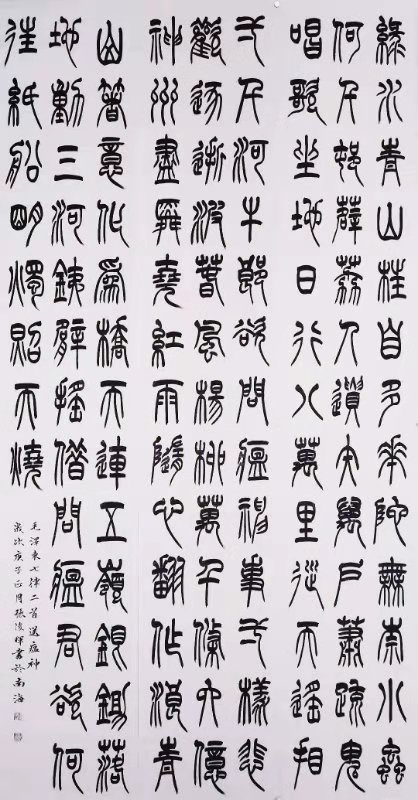 綠水青山枉自多華佗無奈小蟲
何千邨薜荔人遺矢萬戶蕭疏鬼
唱歌坐地日行八萬里巡天遙看
弌千河牛郎欲問瘟神事弌樣悲
歡逐逝波春風楊柳萬千條六億
神州盡舜堯紅雨隨心翻作浪青
山著意化為橋天連五嶺銀鋤落
地動三河鐵臂搖借問瘟君欲何
往紙船明燭照天燒
毛澤東七律二首送瘟神
歲次庚子正月張俊輝書於南海